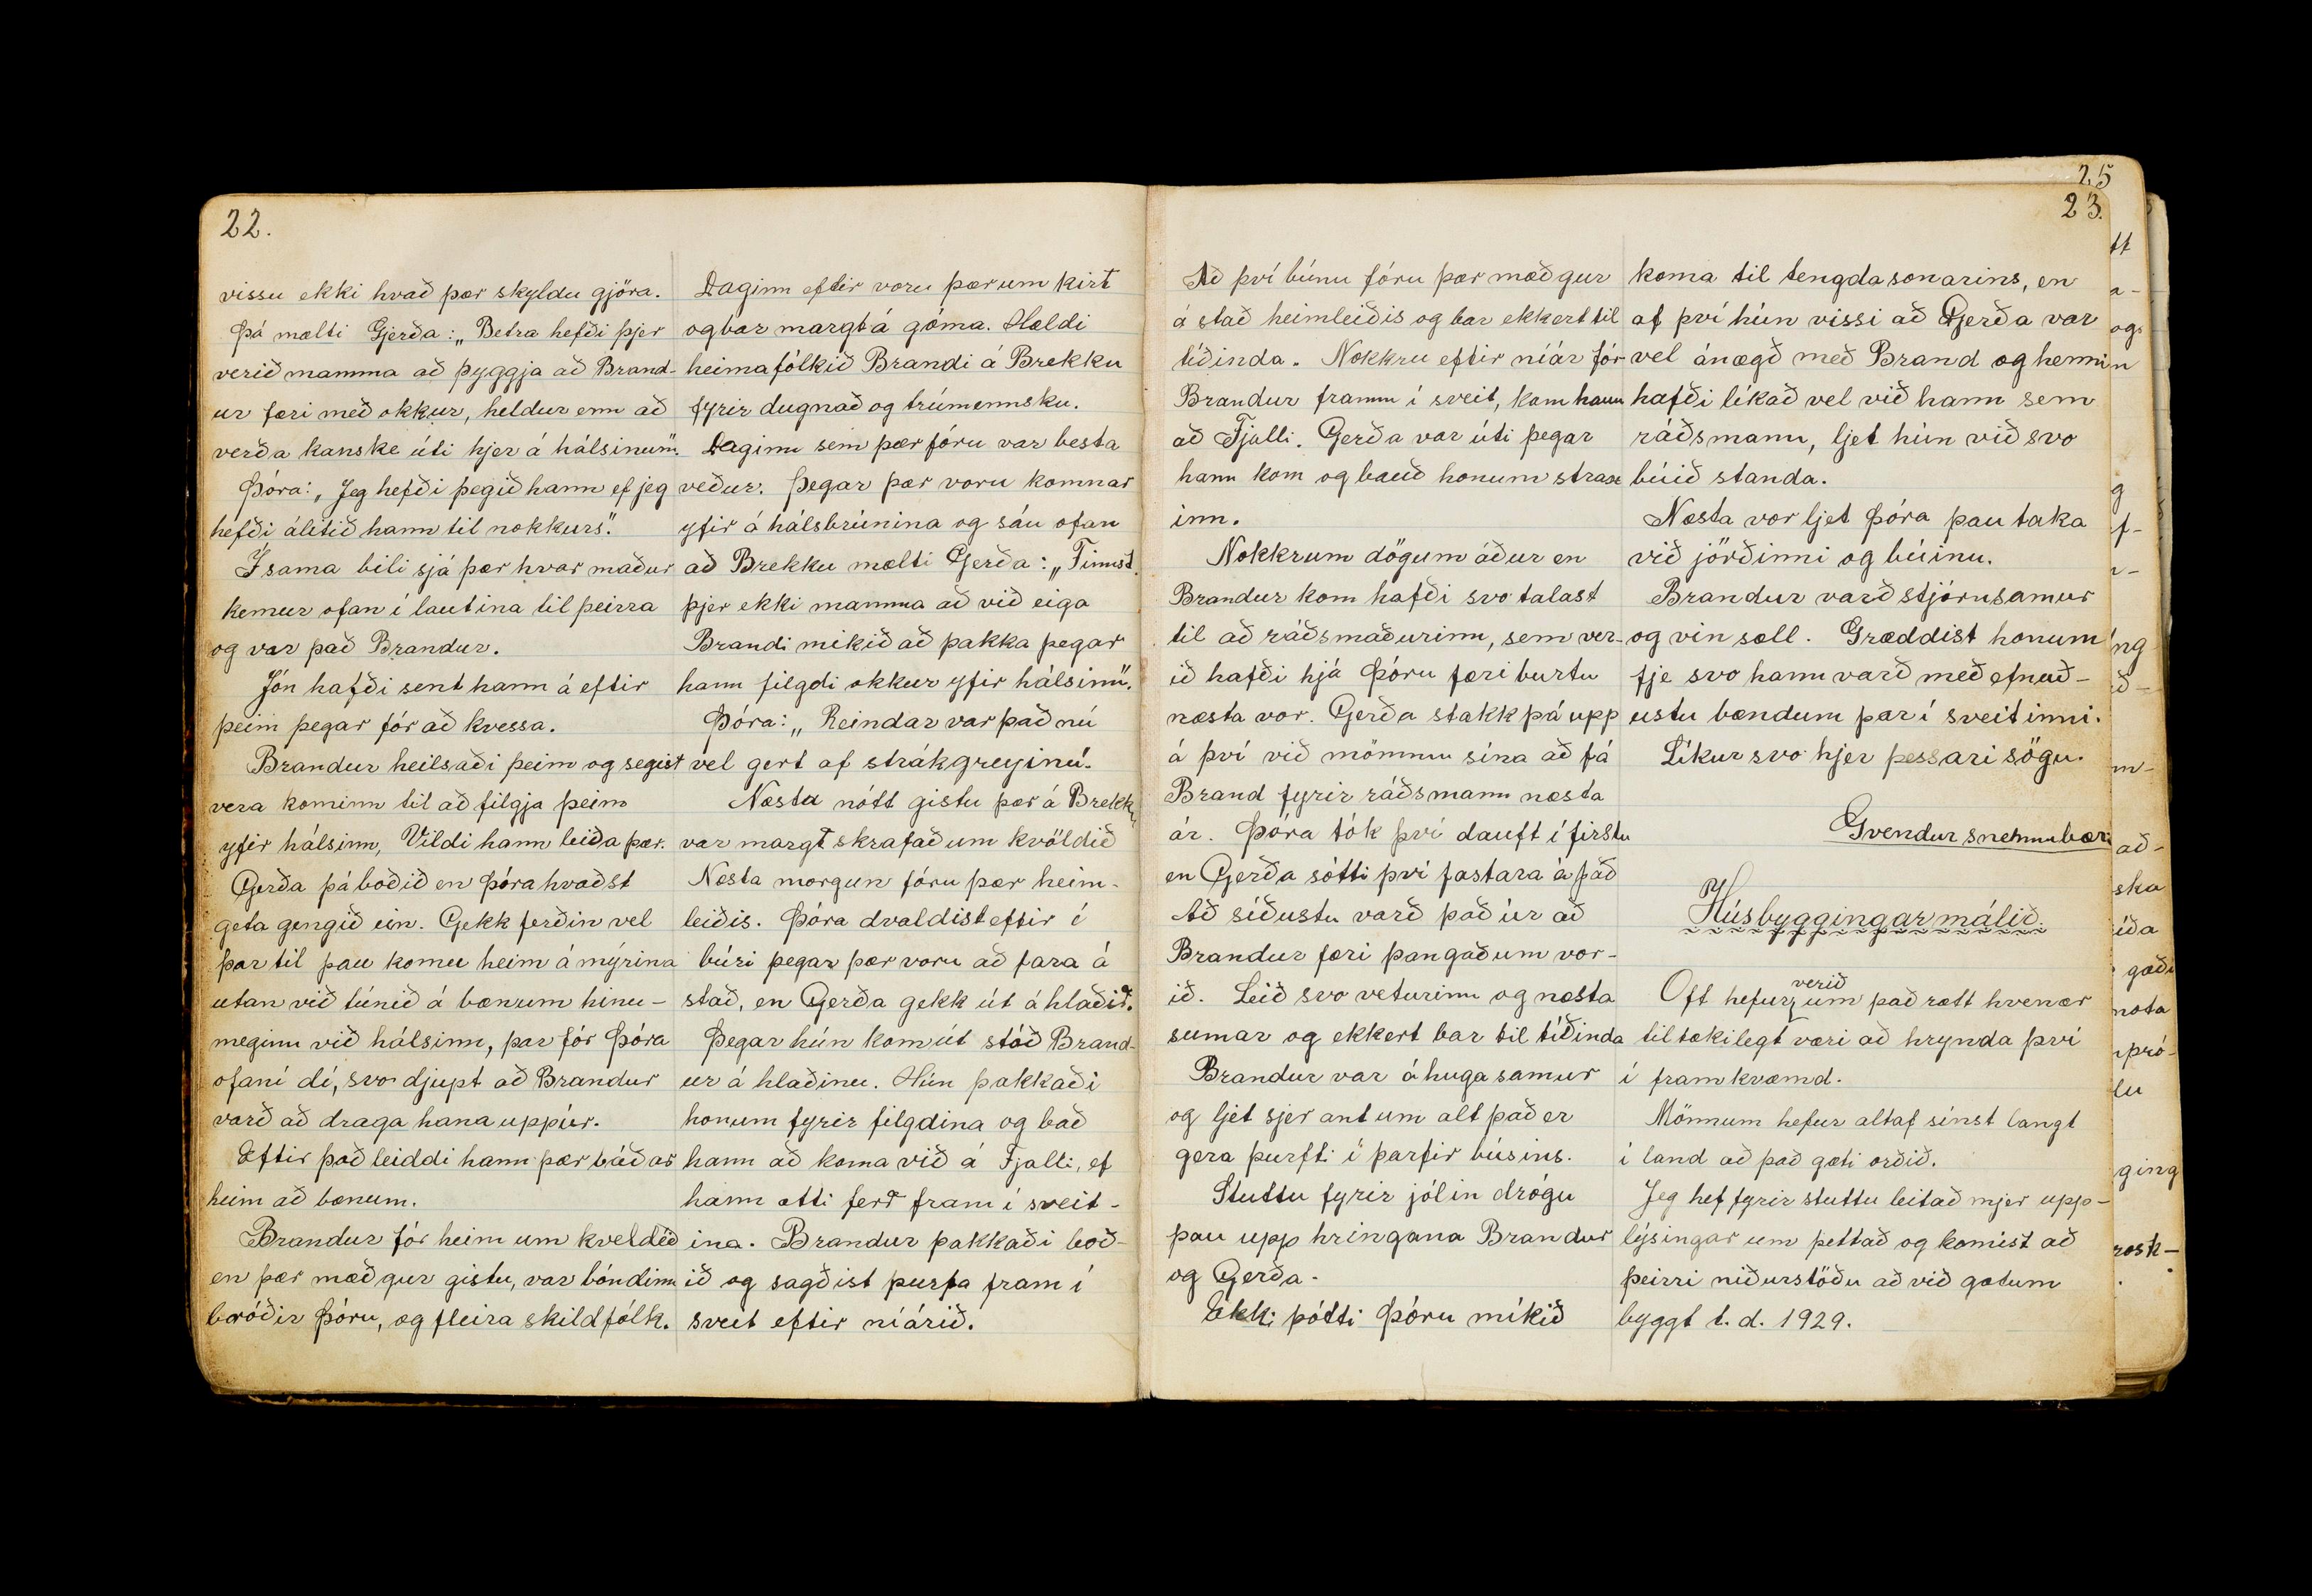 22.
vissu ekki hvað þær skyldu gjöra.
Þá mælti Gjerða: „Betra hefði þjer
verið mamma að þyggja að Brand-
ur færi með okkur, heldur enn að
verða kanske úti hjer á hálsinum“.
Þóra: „Jeg hefði þegið hann ef jeg
hefði álitið hann til nokkurs“.
Í sama bili sjá þær hvar maður
kemur ofan í lautina til þeirra
og var það Brandur.
Jón hafði sent hann á eftir
þeim þegar fór að kvessa.
Brandur heilsaði þeim og segist
vera kominn til að filgja þeim
yfir hálsinn, Vildi hann leiða þær.
Gerða þá boðið en Þóra hvaðst
geta gengið ein. Gekk ferðin vel
þar til þau komu heim á mýrina
utan við túnið á bænum hinu-
meginn við hálsinn, þar fór Þóra
ofaní dí, svo djupt að Brandur
varð að draga hana uppúr.
Eftir það leiddi hann þær báðar
heim að bænum.
Brandur fór heim um kveldið
en þær mæðgur gistu, var bóndinn
bróðir Þóru, og fleira skildfólk.
Daginn eftir voru þær um kirt
og bar margt á góma. Hældi
heimafólkið Brandi á Brekku
fyrir dugnað og trúmennsku.
Daginn sem þær fóru var besta
veður. Þegar þær voru komnar
yfir á hálsbrúnina og sáu ofan
að Brekku mælti Gerða: „Finnst
þjer ekki mamma að við eiga
Brandi mikið að þakka þegar
hann filgdi okkur yfir hálsinn“.
Þóra: „Reindar var það nú
vel gert af strákgreyinu“.
Næstu nótt gistu þær á Brekku
var margt skrafað um kvöldið
Næsta morgun fóru þær heim-
leiðis. Þóra dvaldist eftir í
búri þegar þær voru að fara á
stað, en Gerða gekk út á hlaðið.
Þegar hún kom út stóð Brand-
ur á hlaðinu. Hún þakkaði
honum fyrir filgdina og bað
hann að koma við á Fjalli, ef
hann ætti ferð fram í sveit-
ina. Brandur þakkaði boð-
ið og sagðist þurfa fram í
sveit eftir níárið.
25
23.
Að því búnu fóru þær mæðgur
á stað heimleiðis og bar ekkert til
tíðinda. Nokkru eftir níár fór
Brandur framm í sveit, kom hann
að Fjalli. Gerða var úti þegar
hann kom og bauð honum strax
inn.
Nokkrum dögum áður en
Brandur kom hafði svo talast
til að ráðsmaðurinn, sem ver-
ið hafði hjá Þóru færi burtu
næsta vor. Gerða stakk þá upp
á því við mömmu sína að fá
Brand fyrir ráðsmann næsta
ár. Þóra tók því dauft í firstu
en Gerða sótti því fastara á það
Að síðustu varð það úr að
Brandur færi þangað um vor-
ið. Leið svo veturinn og næsta
sumar og ekkert bar til tíðinda
Brandur var áhugasamur
og ljet sjer ant um alt það er
gera þurfti í þarfir búsins.
Stuttu fyrir jólin drógu
þau upp hringana Brandur
og Gerða.
Ekki þótti Þóru mikið
koma til tengdasonarins, en
af því hún vissi að Gerða var
vel ánægð með Brand og henni
hafði líkað vel við hann sem
ráðsmann, ljet hún við svo
búið standa.
Næsta vor ljet Þóra þau taka
við jörðinni og búinu.
Brandur varð stjórnsamur
og vin sæll. Græddist honum
fje svo hann varð með efnuð-
ustu bændum þar í sveitinni.
Líkur svo hjer þessari sögu.
Gvendur snemmbæri
Húsbyggingarmálið.
Oft hefur verið um það rætt hvenær
tiltækilegt væri að hrynda því
í framkvæmd.
Mönnum hefur altaf sínst langt
í land að það gæti orðið.
Jeg hef fyrir stuttu leitað mjer upp-
lýsingar um þettað og komist að
þeirri niðurstöðu að við gætum
byggt t.d. 1929.